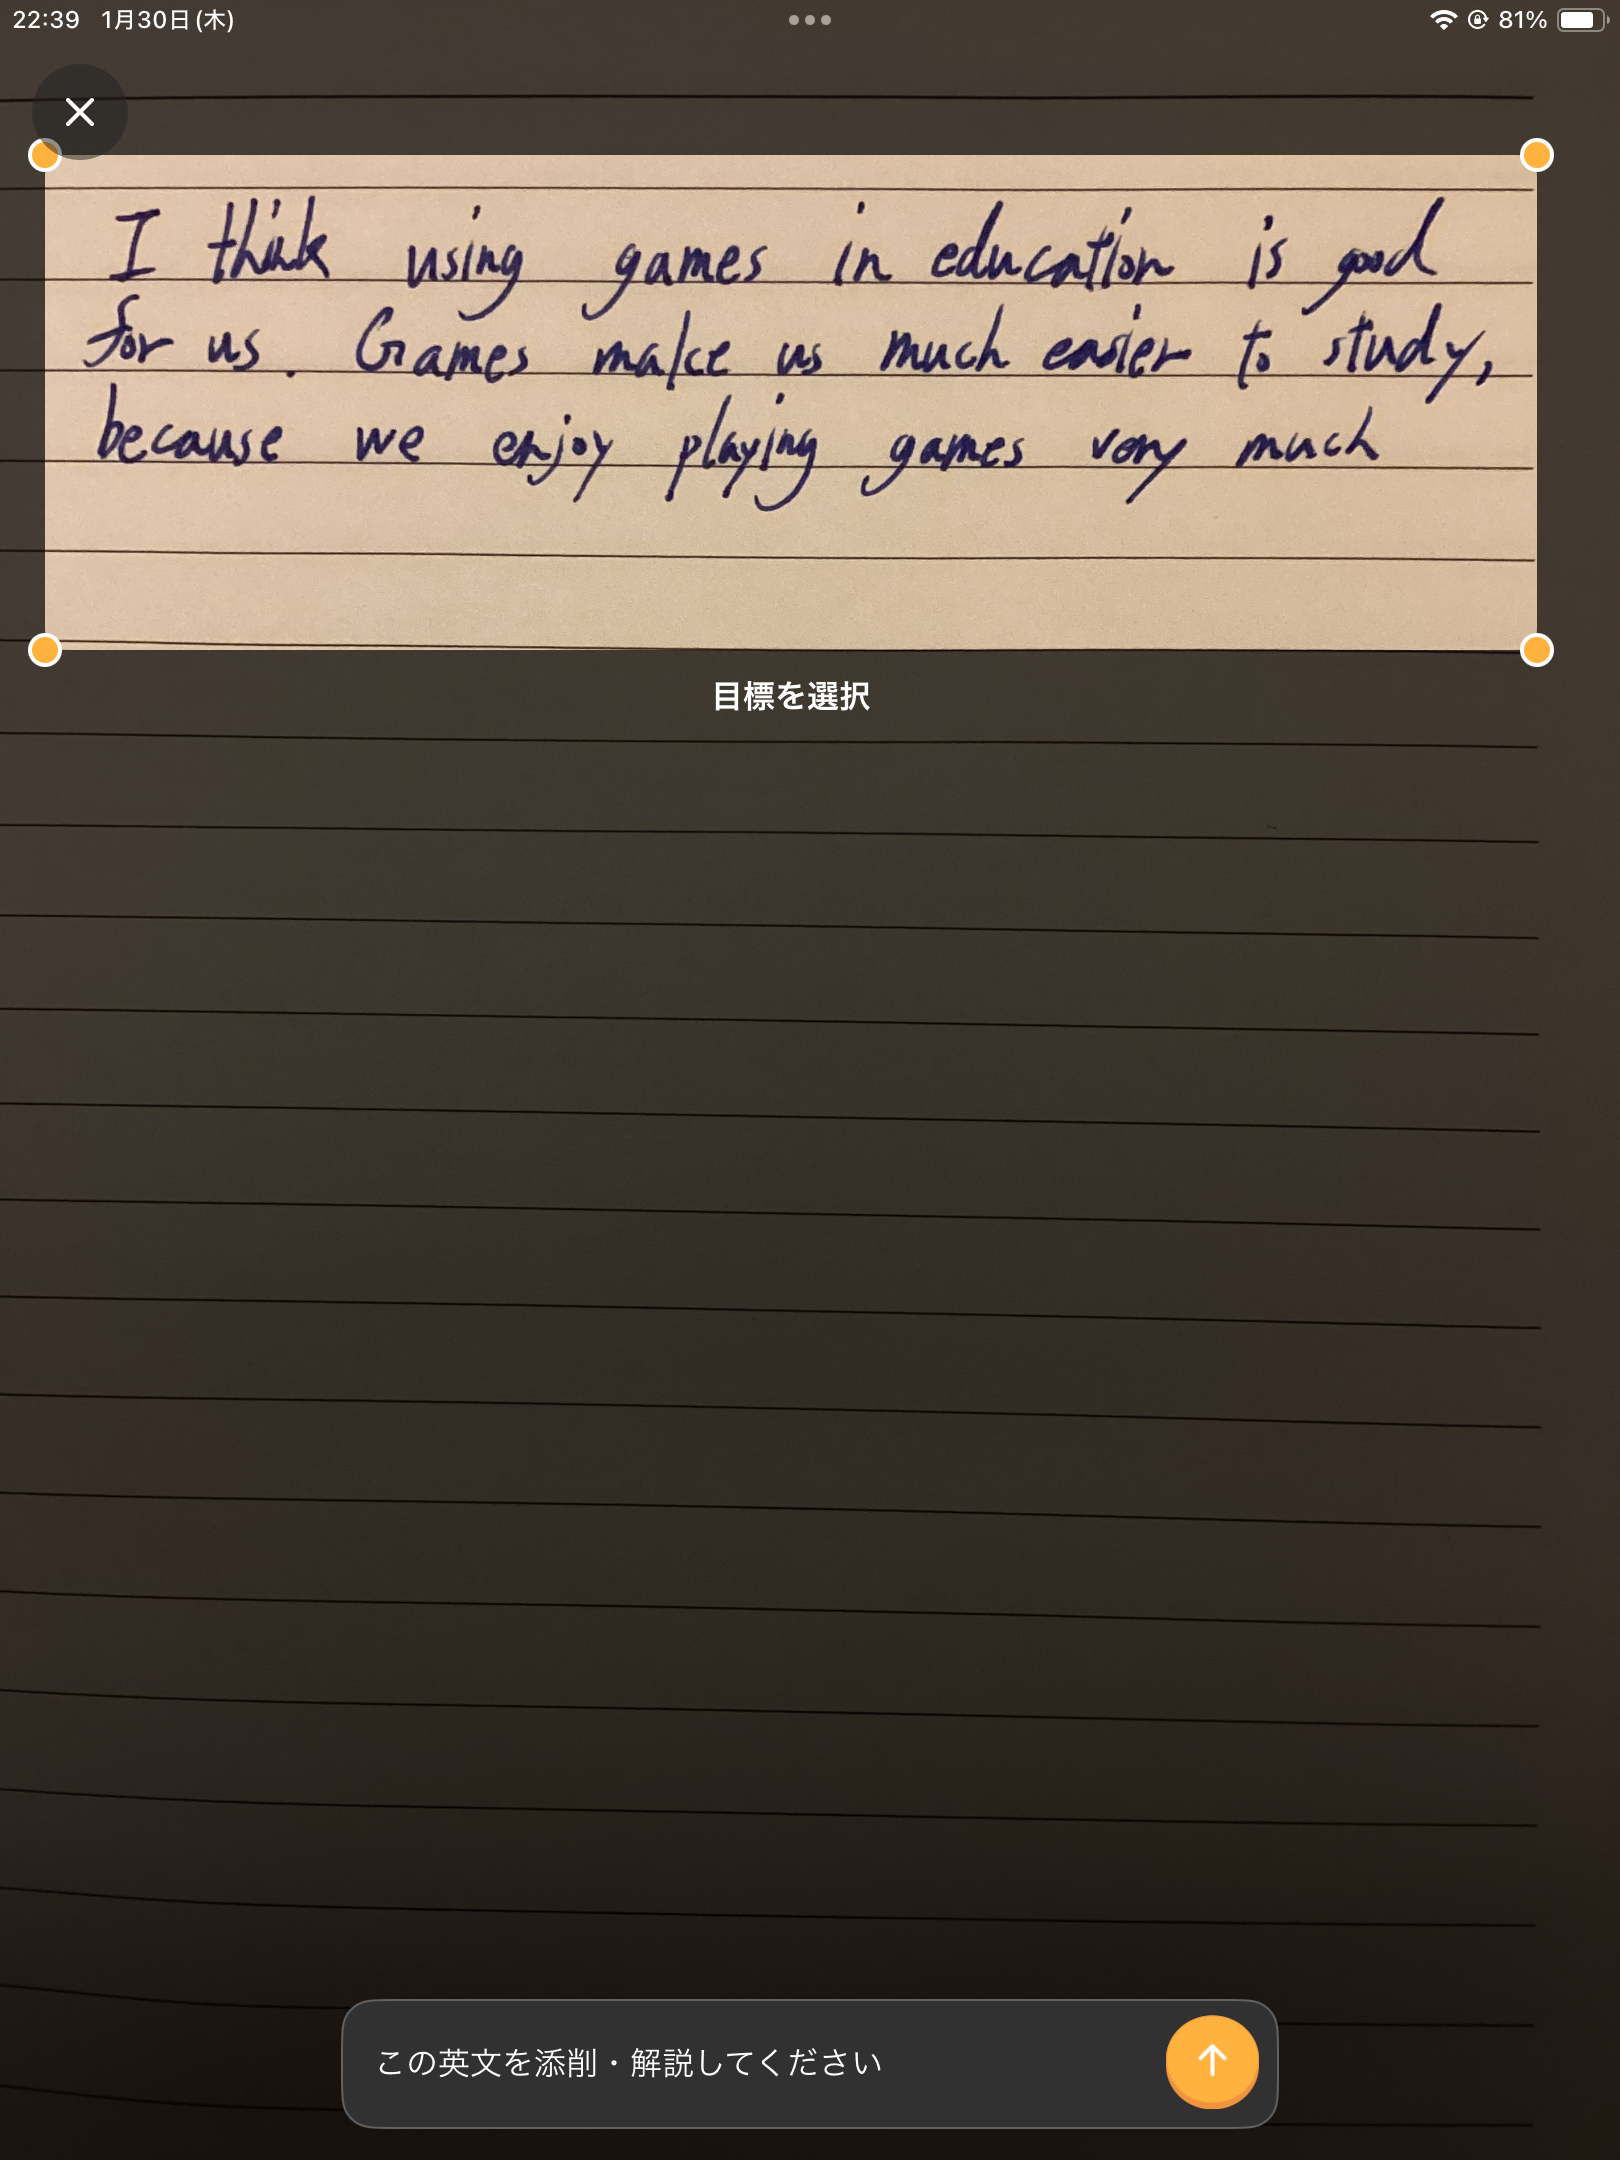 22:39 1月30日(木) 81%
I think using games in education is good
for us. Games make us much easier to study,
because we enjoy playing games very much
目標を選択
この英文を添削・解説してください